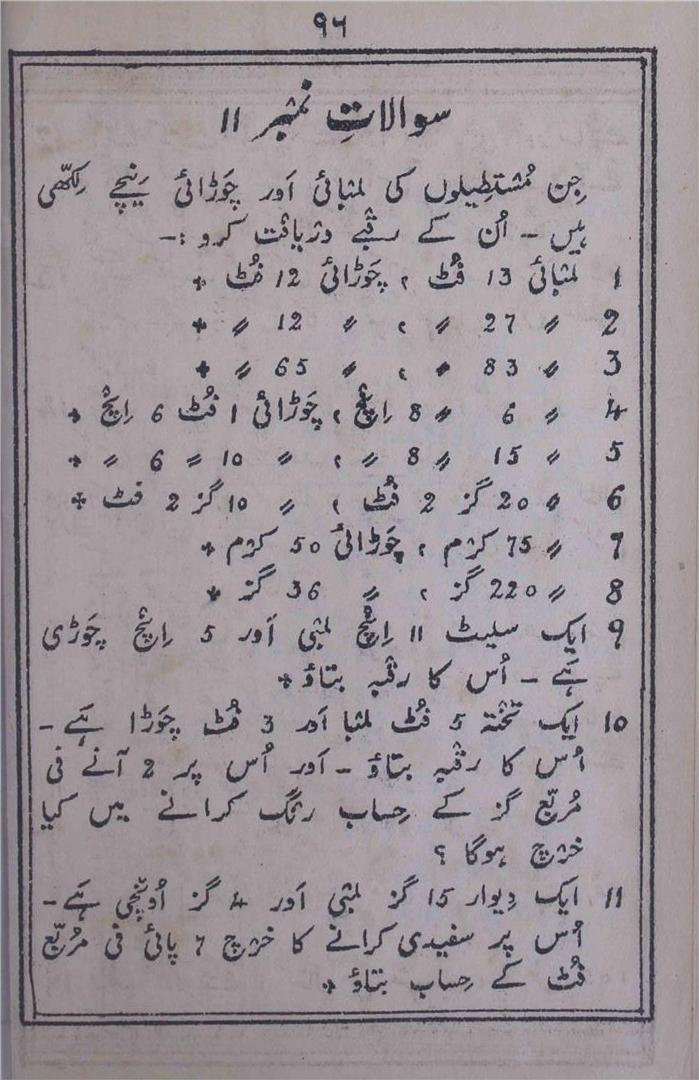 ۹۶
سوالاتِ نمبر 11
جِن مُستطِیلوں کی لمبائی اَور چَوڑائی نِیچے لِکھّی
ہیں - اُن کے رقبے دریافت کرو :-
1 لمبائی 13 فُٹ ، چَوڑائی 12 فُٹ +
2 〃 27 〃 ، 〃 12 〃 +
3 〃 83 〃 ، 〃 65 〃 +
4 〃 6 〃 8 اِنچ ، چَوڑائی 1 فُٹ 6 اِنچ +
5 〃 15 〃 8 〃 ، 〃 10 〃 6 〃 +
6 〃 20 گز 2 فُٹ ، 〃 10 گز 2 فٹ +
7 〃 75 کرم ، چَوڑائی 50 کرم +
8 〃 220 گز ، 〃 36 گز +
9 ایک سلیٹ 11 اِنچ لمبی اَور 5 اِنچ چَوڑی
ہَے - اُس کا رقبہ بتاؤ +
10 ایک تختہ 5 فُٹ لمبا اَور 3 فُٹ چَوڑا ہَے -
اُس کا رقبہ بتاؤ - اَور اُس پر 2 آنے فی
مُربّع گز کے حِساب رنگ کرانے میں کیا
خرچ ہوگا ؟
11 ایک دِیوار 15 گز لمبی اَور 4 گز اُونچی ہَے -
اُس پر سفیدی کرانے کا خرچ 7 پائی فی مُربّع
فُٹ کے حِساب بتاؤ +